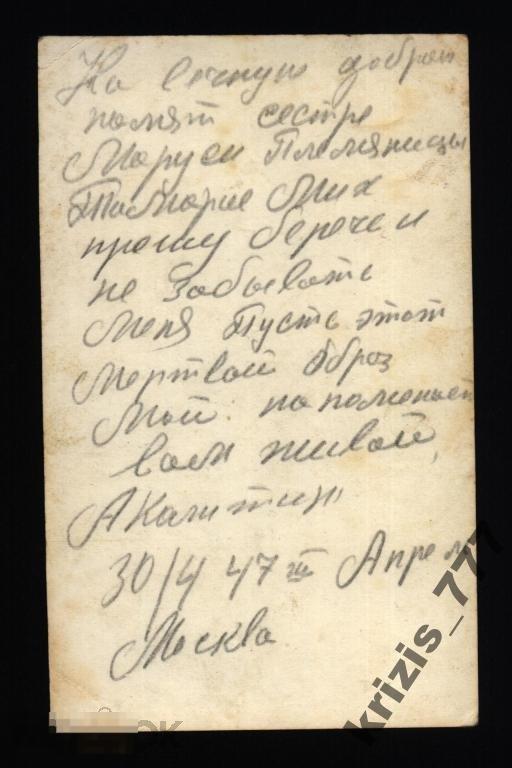 На вечную добрую
помят сестре
Маруси Племяницы
Тамарие Мих
прошу береч и
не забывать
Меня Пусть этот
Мертвой Образ
Мой напоменает
вам живой,
А Калитин
30/4 47 Апрель
Москва
krizis_777